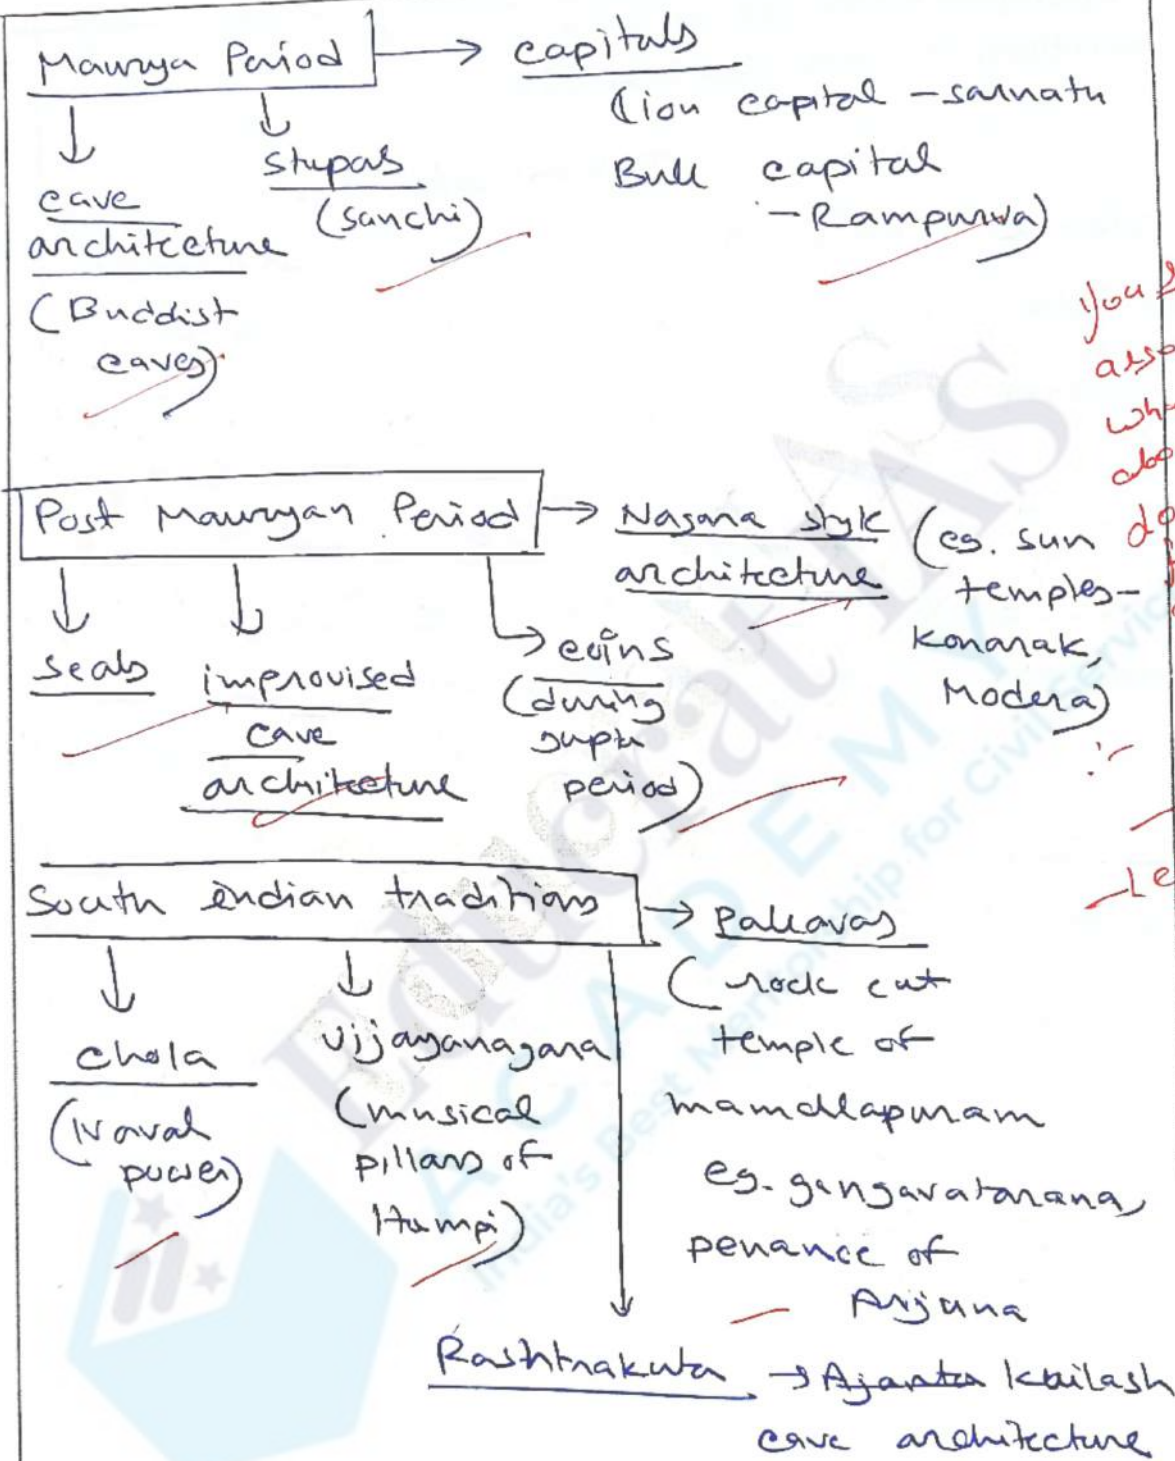 Maurya Period → capitals
(Lion capital - sarnath
Bull capital
- Rampurwa)
stupas
(sanchi)
cave
architecture
(Buddist
caves)
you
Post Mauryan Period → Nagara style
architecture
(eg. sun
temples-
Konarak,
Modera)
seals
improvised
cave
architecture
coins
(during
gupta
period)
South Indian traditions → Pallavas
(rock cut
temple of
mamallapuram
eg. gangavatarana,
penance of
Arjuna
chola
(Naval
power)
vijjayanagara
(musical
pillars of
Hampi)
Rashtrakuta → Ajanta Kailash
cave architecture
Educrat IAS
ACADEMY
India's Best Mentorship for Civil Servic